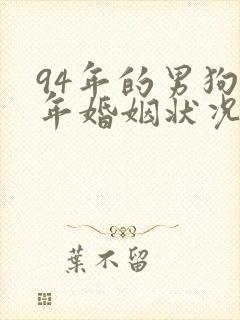 94年的男狗
年婚姻状况
葉不留